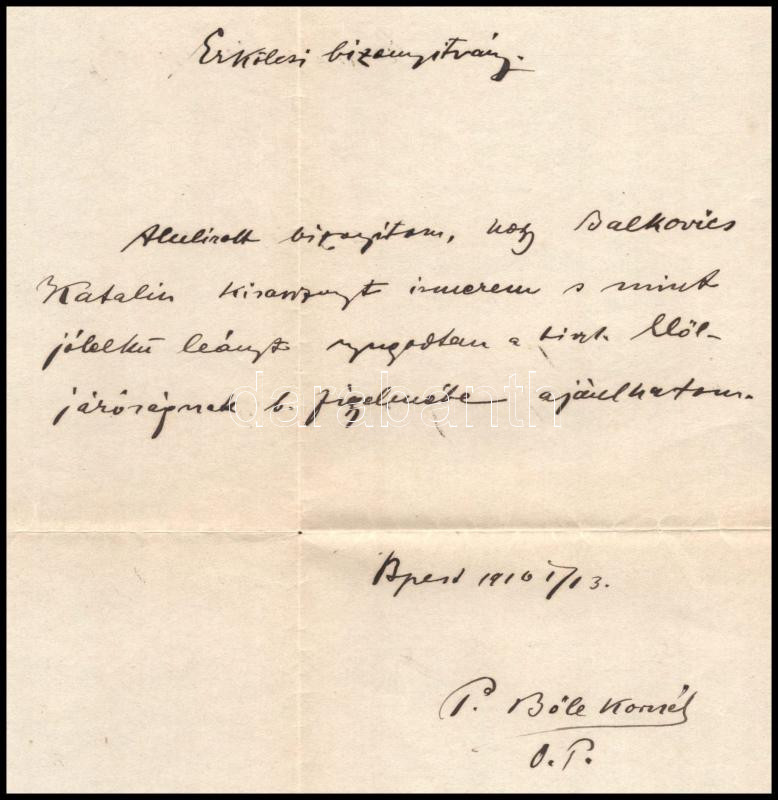 Erkölcsi bizonyitvány.
Alulirott bizonyitom, hogy Balkovics
Katalin kisasszonyt ismerem s mint
jólelkü leányt nyugodtan a tiszt. Elöl-
járóságnak b. figyelmébe ajánlhatom.
darabanth
Bpest 1916 I/13.
P. Bőle Kornél
O. P.